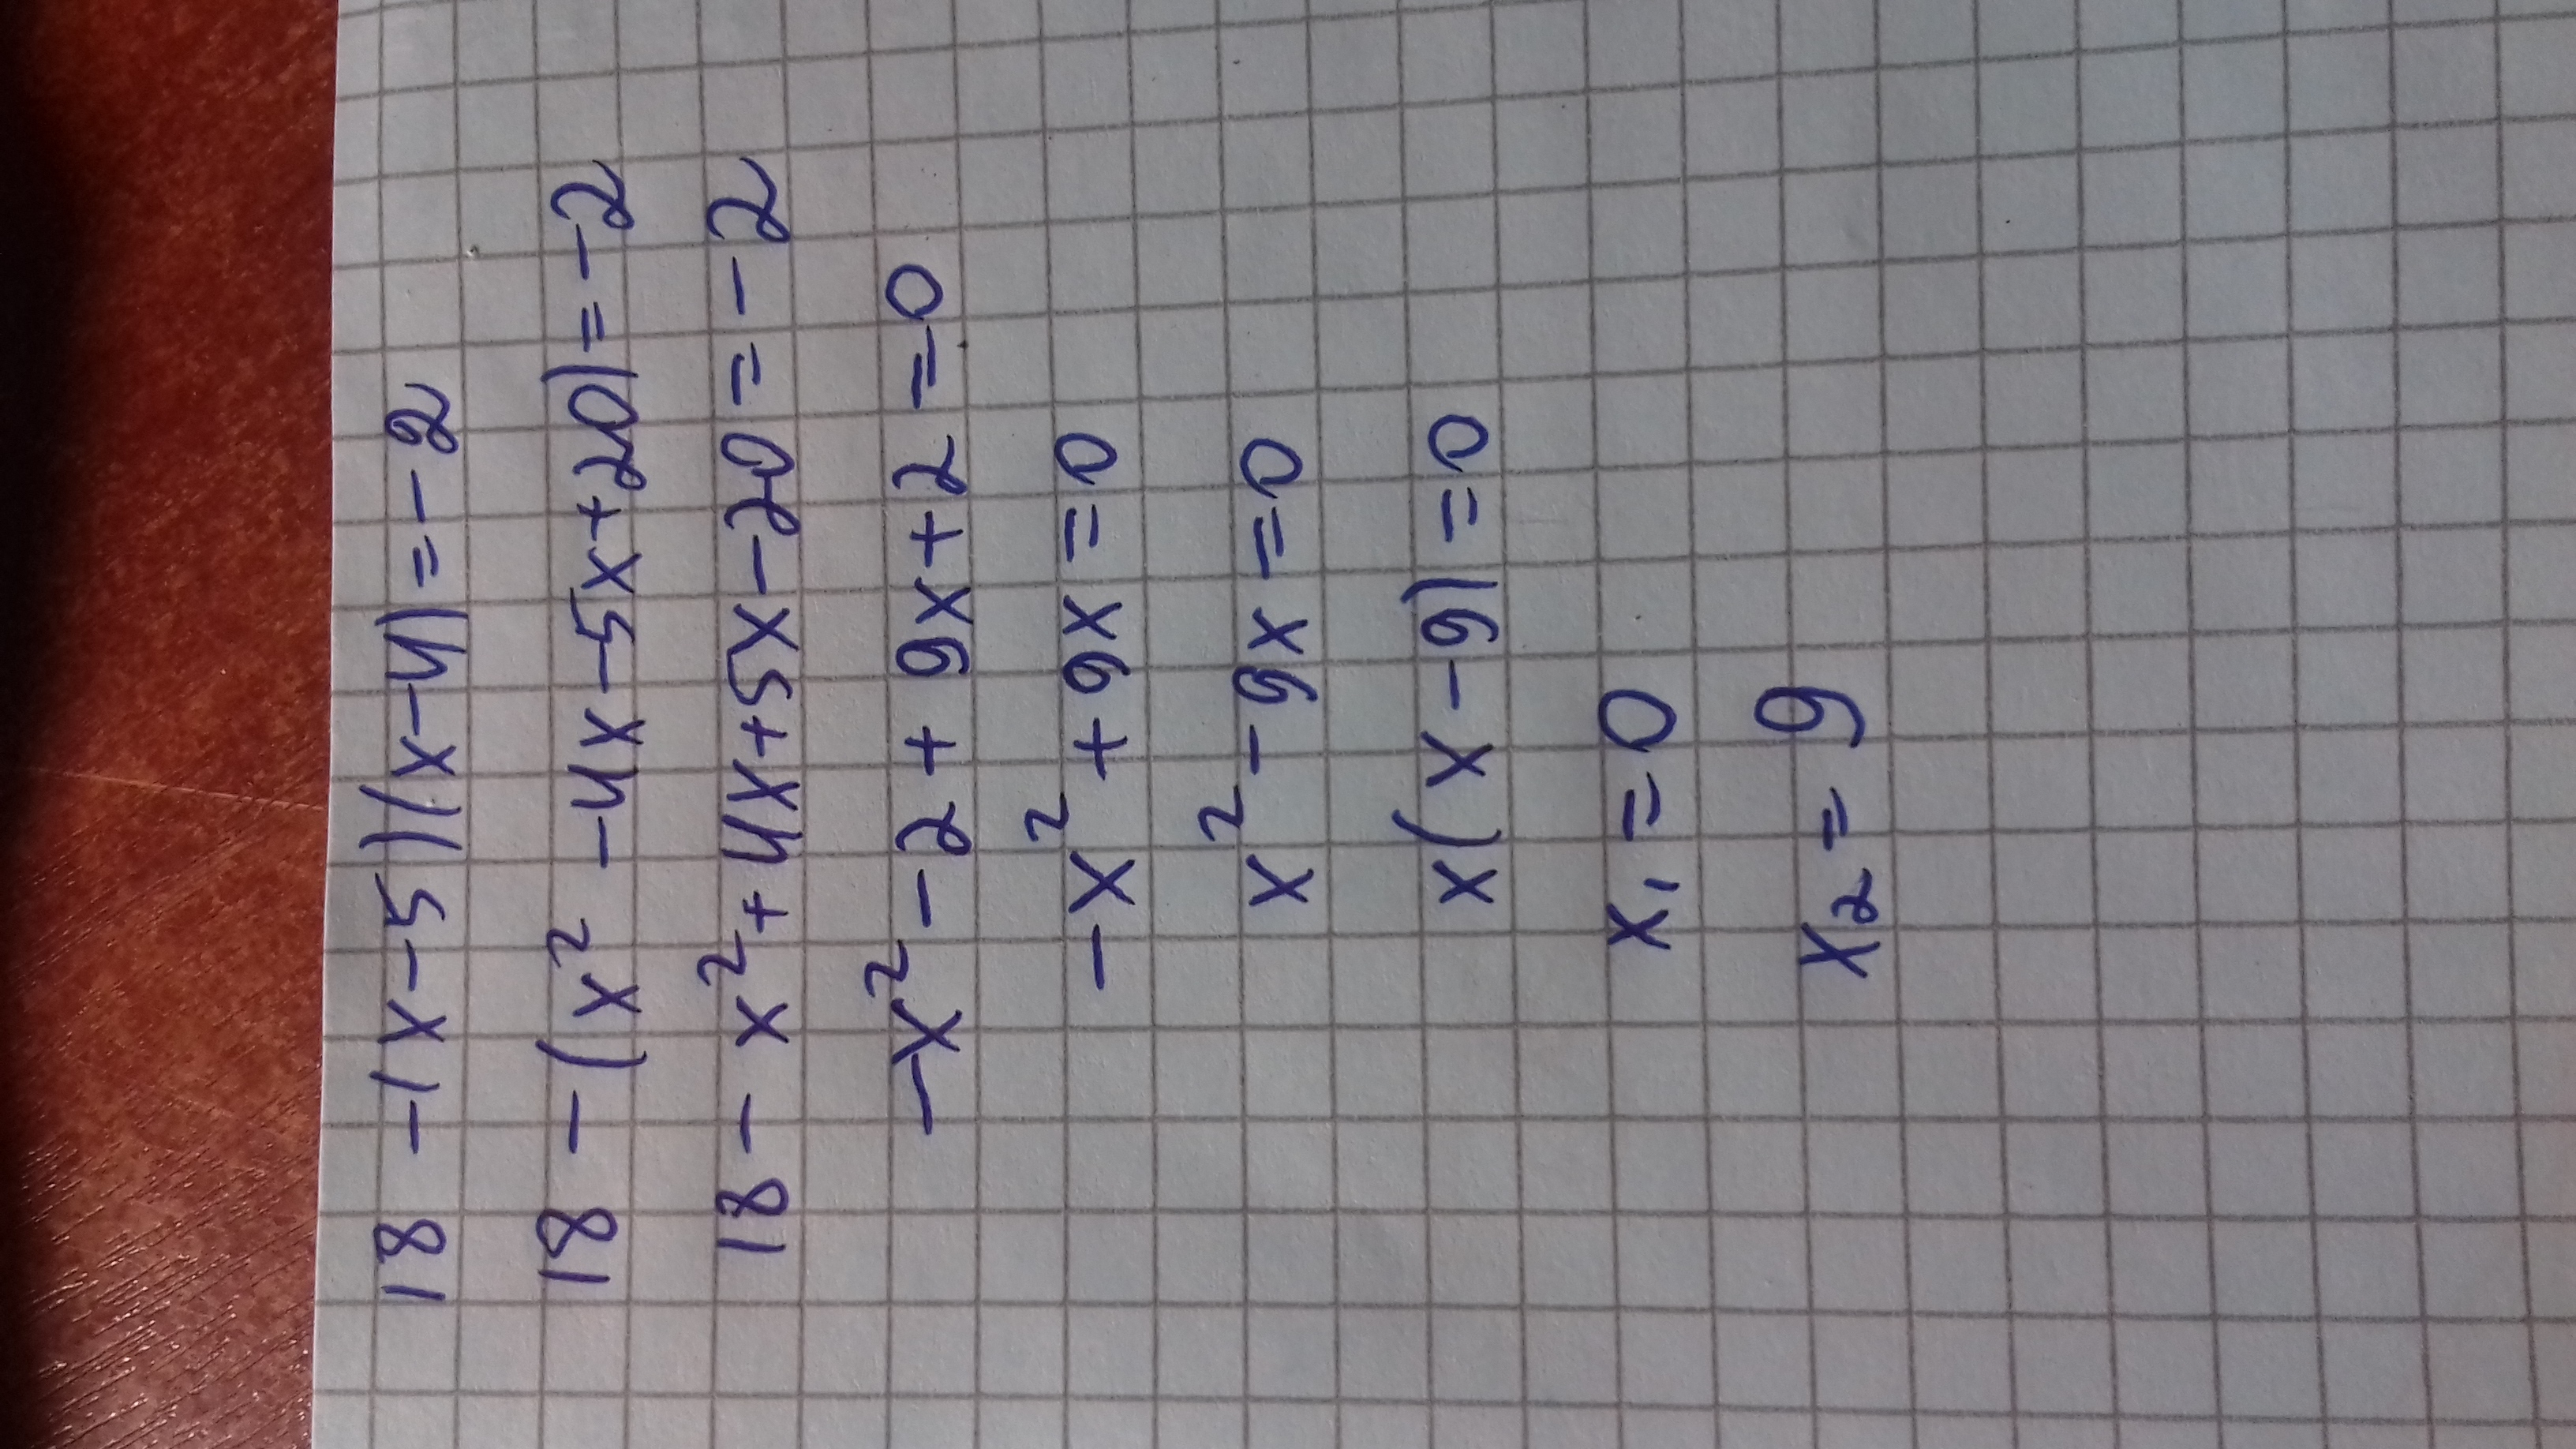 18 - (x - 5)(x - 4) = - 2
18 - (x² - 4x - 5x + 20) = - 2
18 - x² + 4x + 5x - 20 = - 2
- x² - 2 + 9x + 2 = 0
- x² + 9x = 0
x² - 9x = 0
x(x - 9) = 0
x₁ = 0
x₂ = 9